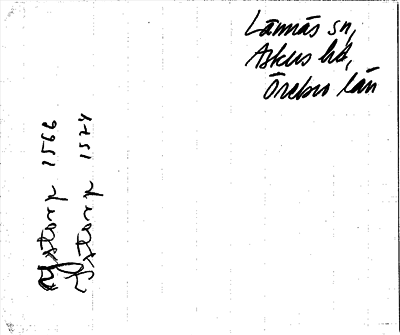 Lännäs sn,
Askers hd,
Örebro län
Ystorp 1566
Ystorp 1524